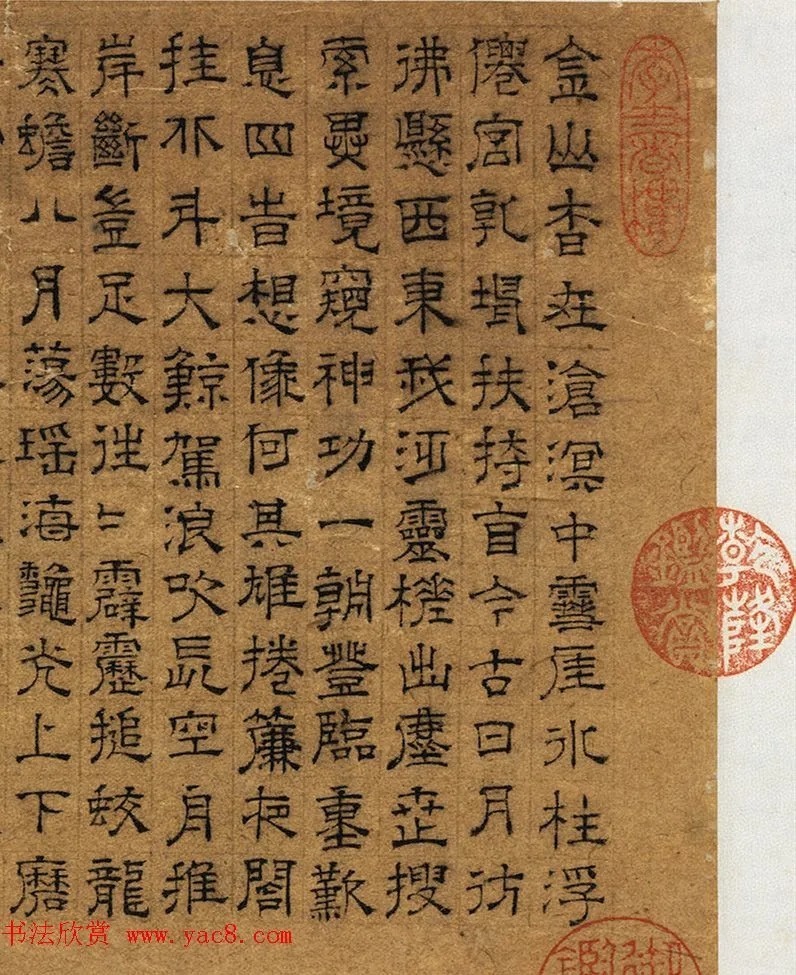 金山杳在滄溟中雪厓冰柱浮
僊宮乾坤扶持自今古日月彷
彿懸西東我泛靈槎出塵世搜
索異境窺神功一朝登臨重歎
息四時想像何其雄捲簾夜閣
挂北斗大鯨駕浪吹長空舟摧
岸斷豈足數往〻霹靂搥蛟龍
寒蟾八月蕩瑤海秋光上下磨
乾隆鑑賞
书法欣赏 www.yac8.com